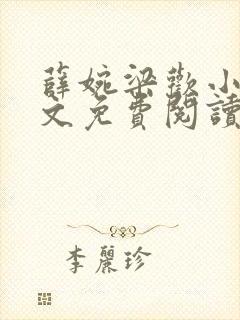 薛婉梁歡小
文免費閱讀
李麗珍